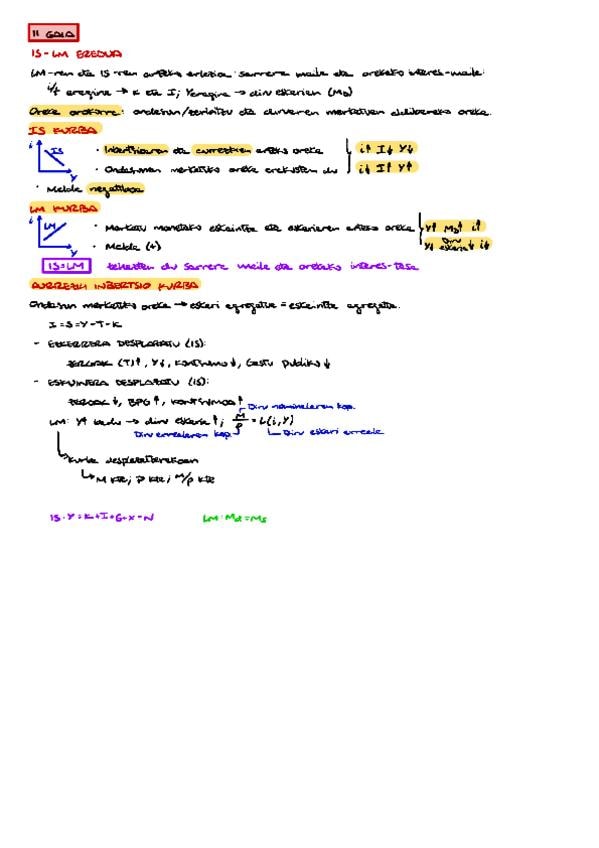 11 GAIA
IS-LM EREDUA
LM-ren eta IS-ren arteko erlazioa: sarrera maila eta orekako interes-maila:
eragina → K eta I; Y eragina → diru eskarian (MD)
Oreka orokorra: ondasun/zerbitzu eta diruaren merkatuen aldibereko oreka.
IS KURBA
i IS Y
· Inbertsioaren eta aurrezkien arteko oreka
i↑ I↓ Y↓
· Ondasunen merkatuko oreka erakusten du
i↓ I↑ Y↑
· Malda negatiboa
LM KURBA
i LM Y
· Merkatu monetako eskaintza eta eskariaren arteko oreka
Y↑ MD↑ i↑
· Malda (+)
Y↓ Diru eskaria↓ i↓
IS=LM zehazten du sarrera maila eta orekako interes-tasa
AURREZKI INBERTSIO KURBA
Ondasun merkatuko oreka → eskari agregatua = eskaintza agregatua.
I = S = Y - T - K
- EZKERRERA DESPLAZATU (IS):
ZERGAK (T)↑, Y↓, KONTSUMO↓, Gastu Publiko↓
- ESKUINERA DESPLAZATU (IS):
ZERGAK↓, BPG↑, KONTSUMOA↑
Diru nominalaren kop.
LM: Y↑ badu → diru eskaria↑; M/P = L(i,Y)
Diru errealaren kop. Diru eskari erreala
Kurba desplazatzerakoan
M KTE; P KTE; M/P KTE
IS: Y = K + I + G + X - N LM: Md = Ms